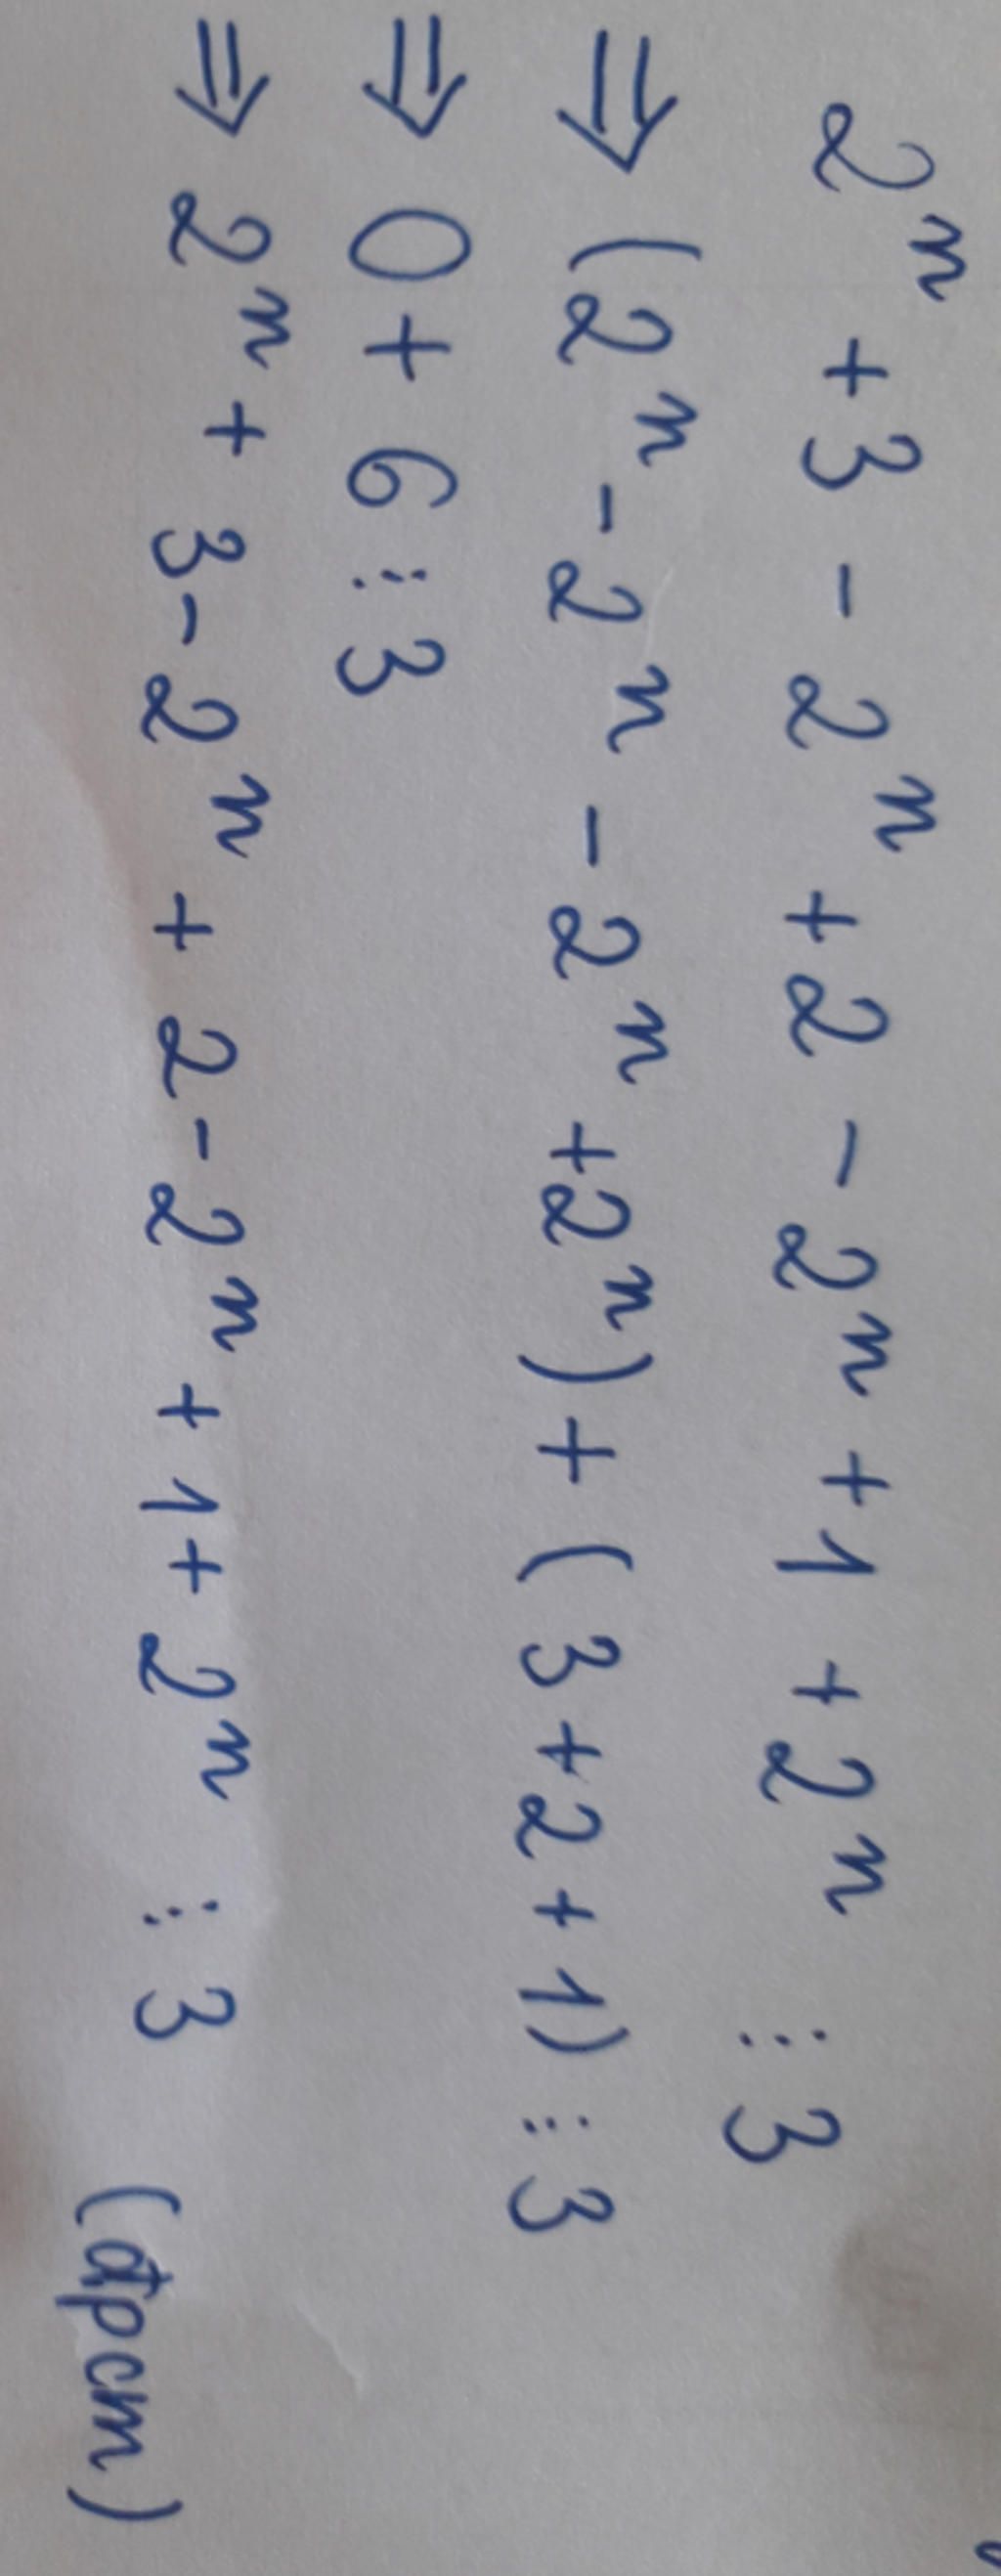 2ⁿ + 3 - 2ⁿ + 2 - 2ⁿ + 1 + 2ⁿ ⋮ 3
⇒ (2ⁿ - 2ⁿ - 2ⁿ + 2ⁿ) + (3 + 2 + 1) ⋮ 3
⇒ 0 + 6 ⋮ 3
⇒ 2ⁿ + 3 - 2ⁿ + 2 - 2ⁿ + 1 + 2ⁿ ⋮ 3 (đpcm)